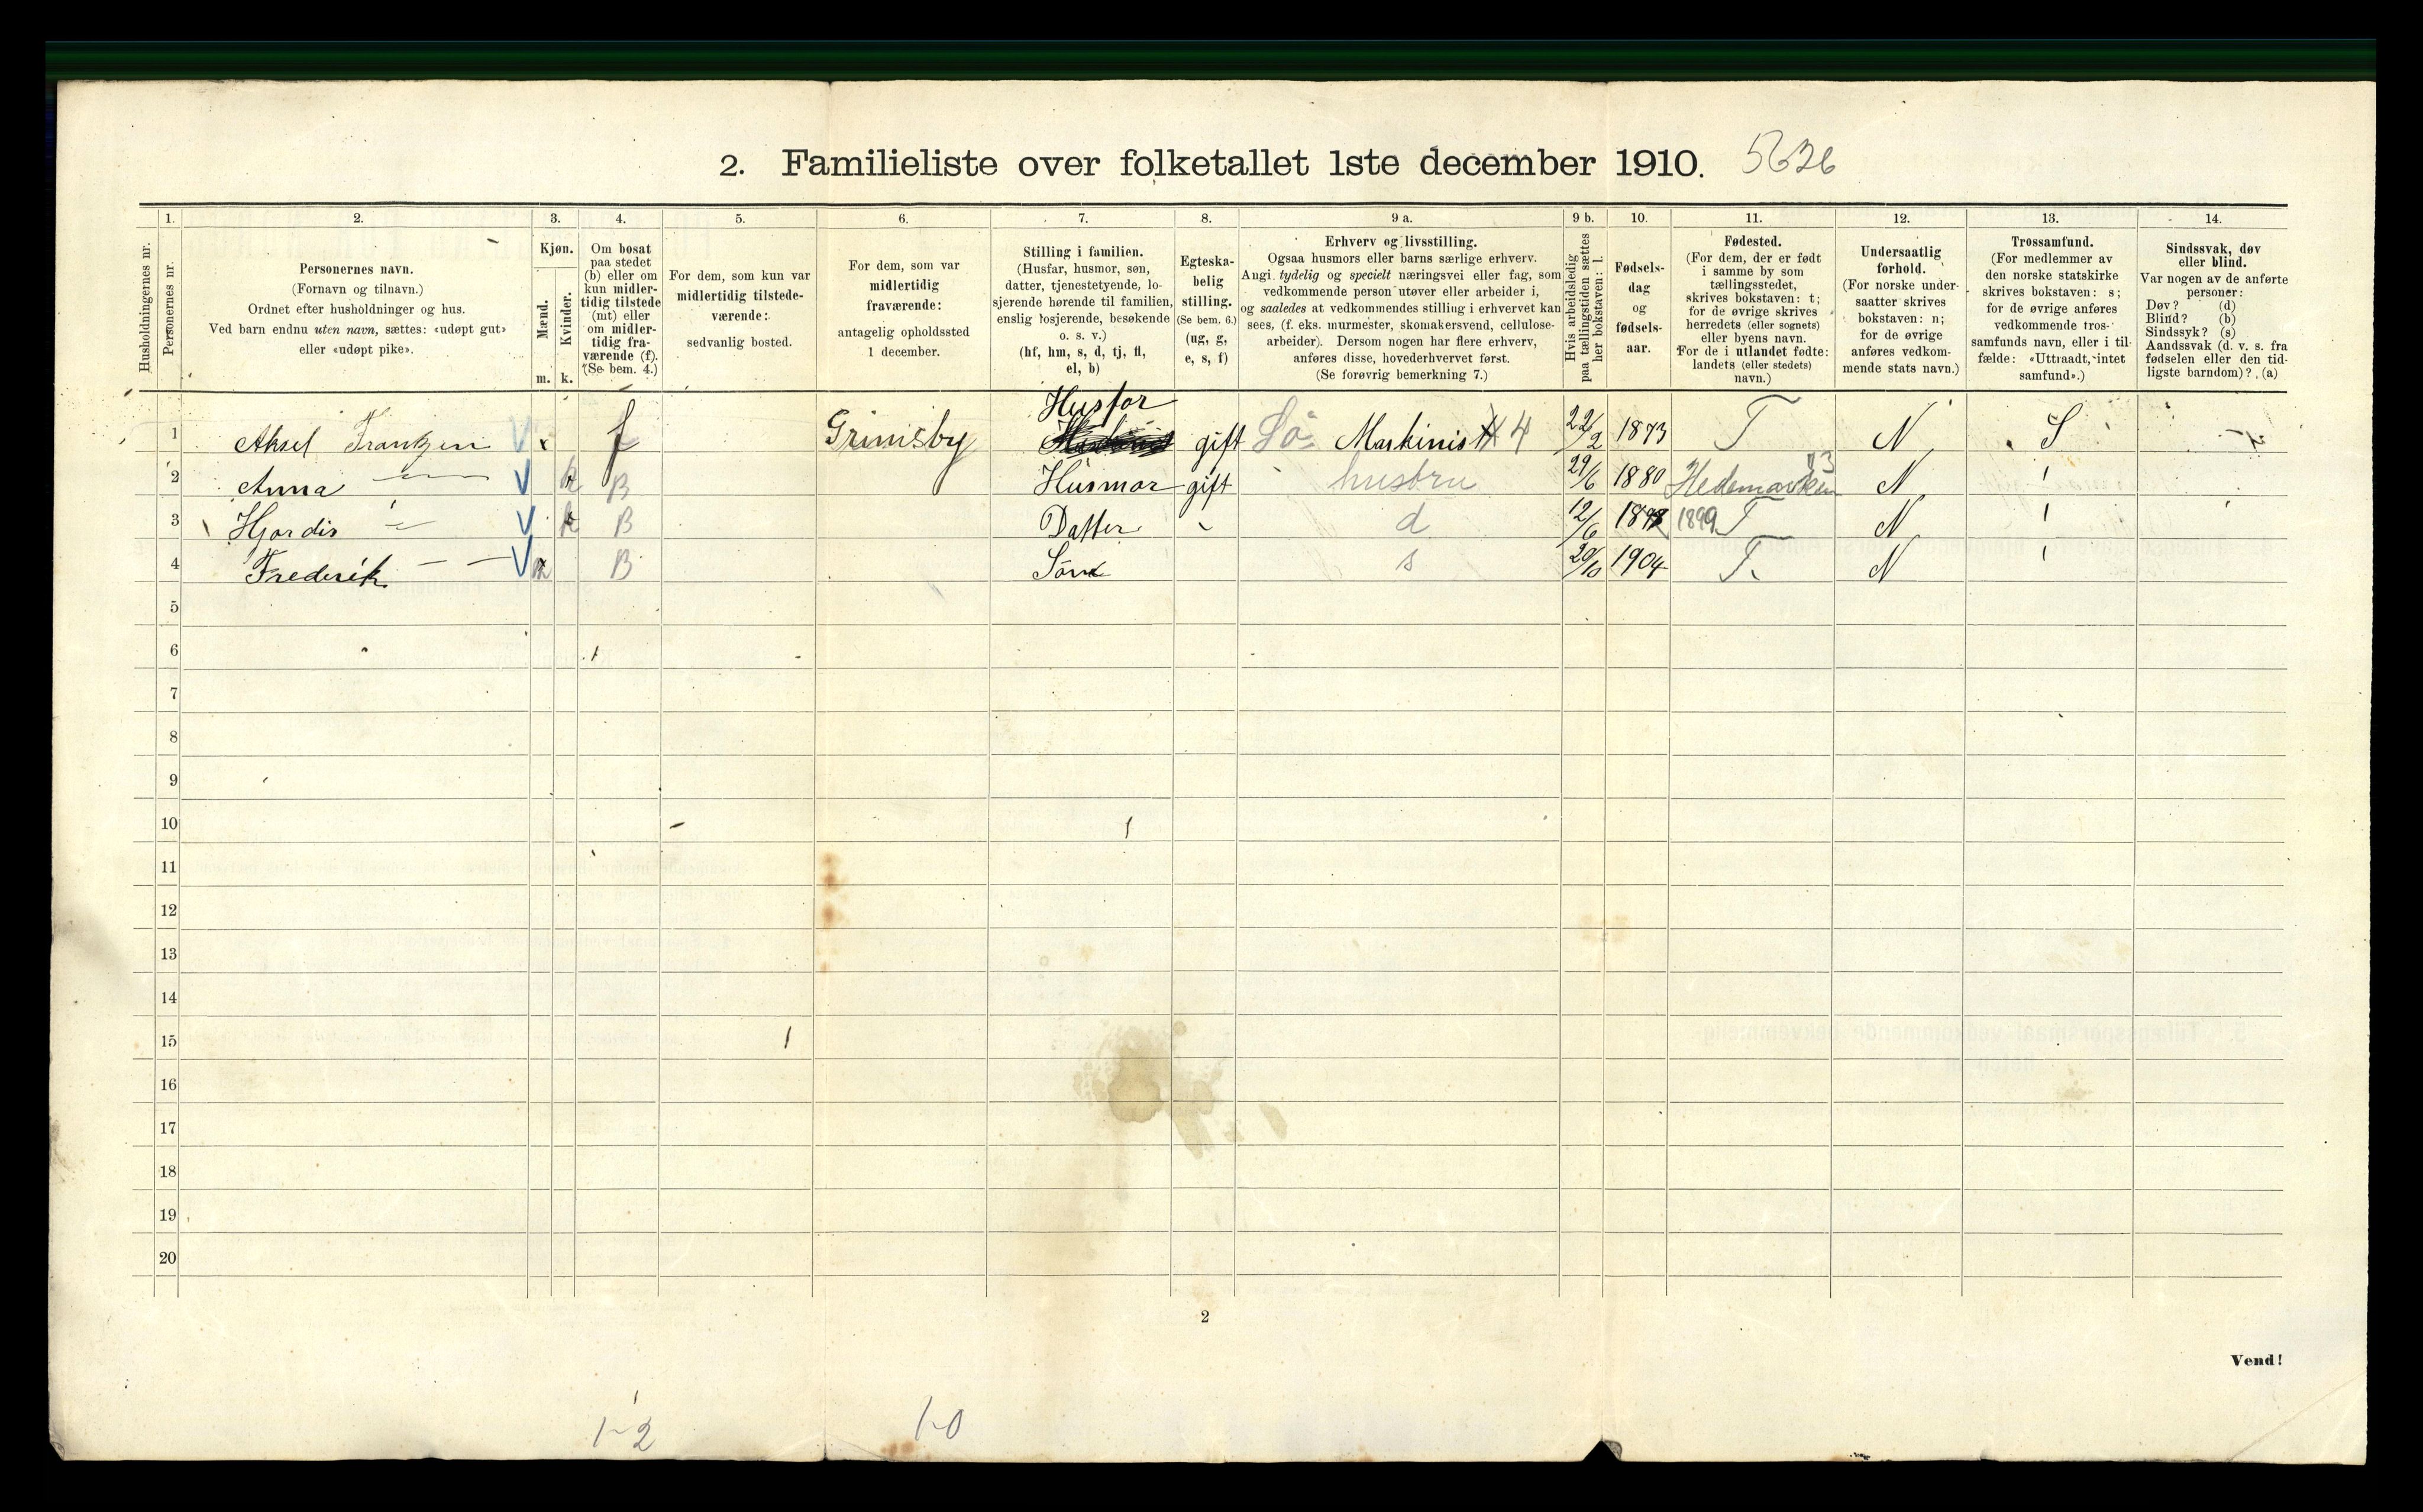 2. Familieliste over folketallet 1ste december 1910. 5636
1. 2. 3. 4. 5. 6. 7. 8. 9 a. 9 b. 10. 11. 12. 13. 14.
Husholdningernes nr.
Personernes nr.
Personernes navn.
(Fornavn og tilnavn.)
Ordnet efter husholdninger og hus.
Ved barn endnu uten navn, sættes: «udøpt gut»
eller «udøpt pike».
Kjøn.
Mænd.
Kvinder.
m. k.
Om bosat
paa stedet
(b) eller om
kun midler-
tidig tilstede
(mt) eller
om midler-
tidig fra-
værende (f).
(Se bem. 4.)
For dem, som kun var
midlertidig tilstede-
værende:
sedvanlig bosted.
For dem, som var
midlertidig
fraværende:
antagelig opholdssted
1 december.
Stilling i familien.
(Husfar, husmor, søn,
datter, tjenestetyende, lo-
sjerende hørende til familien,
enslig losjerende, besøkende
o. s. v.)
(hf, hm, s, d, tj, fl,
el, b)
Egteska-
belig
stilling.
(Se bem. 6.)
(ug, g,
e, s, f)
Erhverv og livsstilling.
Ogsaa husmors eller barns særlige erhverv.
Angi tydelig og specielt næringsvei eller fag, som
vedkommende person utøver eller arbeider i,
og saaledes at vedkommendes stilling i erhvervet kan
sees, (f. eks. murmester, skomakersvend, cellulose-
arbeider). Dersom nogen har flere erhverv,
anføres disse, hovederhvervet først.
(Se forøvrig bemerkning 7.)
Hvis arbeidsledig
paa tællingstiden sættes
her bokstaven: l.
Fødsels-
dag
og
fødsels-
aar.
Fødested.
(For dem, der er født
i samme by som
tællingsstedet,
skrives bokstaven: t;
for de øvrige skrives
herredets (eller sognets)
eller byens navn.
For de i utlandet fødte:
landets (eller stedets)
navn.)
Undersaatlig
forhold.
(For norske under-
saatter skrives
bokstaven: n;
for de øvrige
anføres vedkom-
mende stats navn.)
Trossamfund.
(For medlemmer av
den norske statskirke
skrives bokstaven: s;
for de øvrige anføres
vedkommende tros-
samfunds navn, eller i til-
fælde: «Uttraadt, intet
samfund».)
Sindssvak, døv
eller blind.
Var nogen av de anførte
personer:
Døv? (d)
Blind? (b)
Sindssyk? (s)
Aandssvak (d. v. s. fra
fødselen eller den tid-
ligste barndom)? (a)
Husfar
1 Aksel Frantzen V x f Grimsby gift Sö= Maskinist 4 22/2 1873 T N S
2 Anna — V k B Husmor gift hustru 29/6 1880 Hedemarken N
3 Hjordis — V k B Datter d 12/6 1898 1899 T N
4 Frederik — — V m B Sön s 29/10 1904 T. N
5
6
7
8
9
10
11
12
13
14
15
16
17
18
19
20
2
Vend!
1-2 1-0